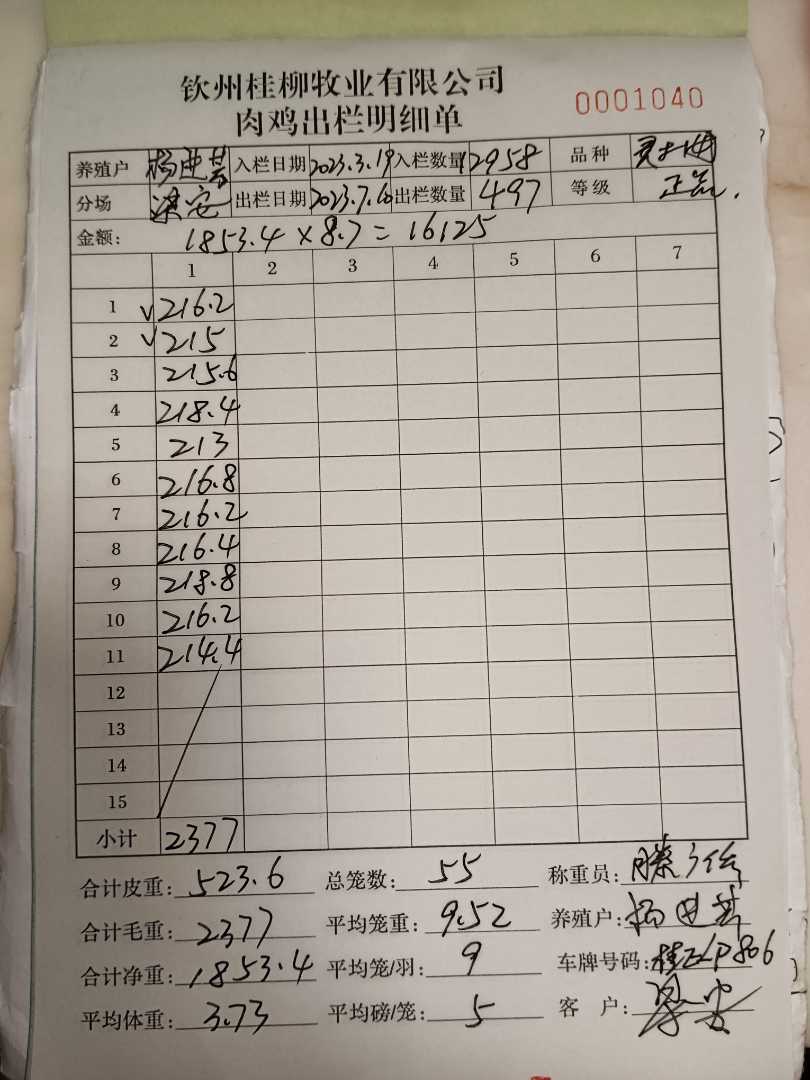 钦州桂柳牧业有限公司
肉鸡出栏明细单
0001040
养殖户 杨 入栏日期 2023.3.19 入栏数量 12958 品种 灵
分场 出栏日期 2023.7.16 出栏数量 497 等级 正品.
金额: 1853.4 × 8.7 = 16125
1 2 3 4 5 6 7
1 √ 216.2
2 √ 215
3 215.6
4 218.4
5 213
6 216.8
7 216.2
8 216.4
9 218.8
10 216.2
11 214.4
12
13
14
15
小计 2377
合计皮重: 523.6 总笼数: 55 称重员: 滕
合计毛重: 2377 平均笼重: 9.52 养殖户: 杨
合计净重: 1853.4 平均笼/羽: 9 车牌号码:
平均体重: 3.73 平均磅/笼: 5 客 户: